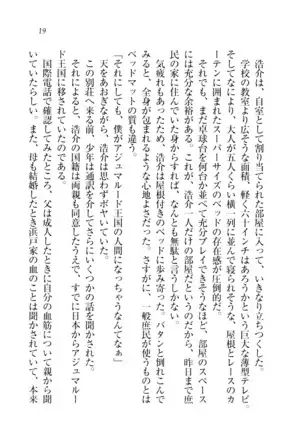 19
　浩介は、自室として割り当てられた部屋に入って、いきなり立ちつくした。
　学校の教室より広そうな面積、軽く六十インチはあろうかという巨大な薄型テレビ、
そしてなにより、大人が五人くらい横一列に並んで寝られそうな、屋根とレースのカ
ーテンに囲まれたスーパーサイズのベッドの存在感が圧倒的だ。
　それでも、まだ卓球台を何台か並べて充分プレイできそうなほど、部屋のスペース
には充分な余裕がある。これが、浩介一人だけの部屋だというのだから、昨日まで庶
民の家に住んでいた身からすると、なんとも無駄と言うしかない。
　気疲れもあったため、浩介は屋根付きのベッドに歩み寄った。バタンと倒れこんで
みると、全身が包まれるような心地よさだった。さすがに、一般庶民が使うものとは
ベッドマットの質も違う。
「それにしても、僕がアジュマルード王国の人間になっちゃうなんてなぁ」
　天をあおぎながら、浩介は思わずボヤいていた。
　この別荘へ来る前、少年は通訳を介してさらにいくつかの話を聞かされた。
　それによると、浩介の国籍は両親も同意したうえで、すでに日本からアジュマルー
ド王国に移されていたのである。
　国際電話で確認してみたところ、父は成人したときに自分の血筋について親から聞
いていたらしい。また、母も結婚したときに浜戸家の血のことは聞かされていて、本来